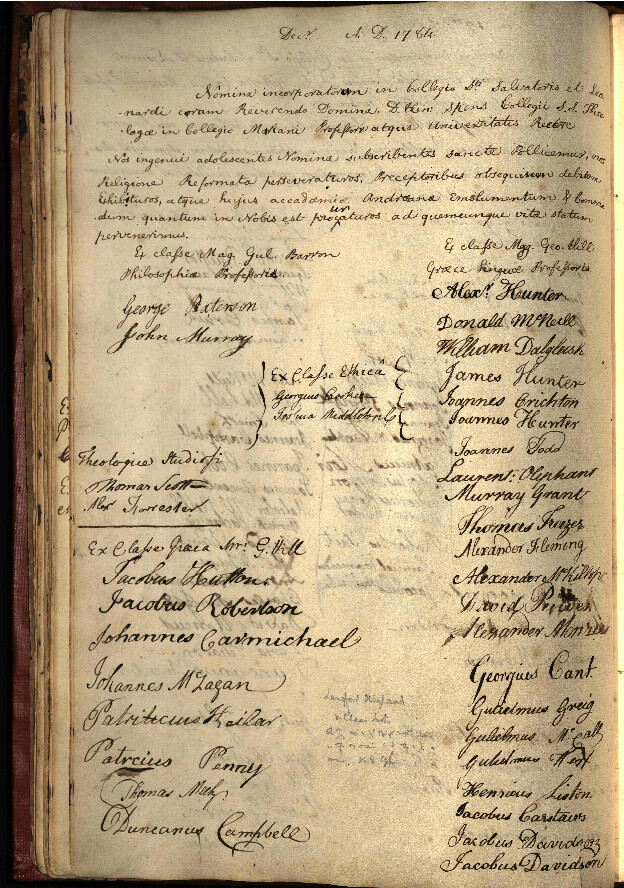 Decr. A. D. 1784.
Nomina incorporatorum in Collegio Sti Salvatoris et Leo-
nardi coram Reverendo Domino D. Spens Collegii S.S. Theo-
logiæ in Collegio Mariani Professori atque Universitatis Rectore
Nos ingenui adolescentes Nomina subscribentes sancte Pollicemur, nos
Religione Reformata perseveraturos, Preceptoribus obsequium debitum
Exhibituros, atque hujus accademiæ Andreanæ Emolumentum & Commo-
dum quantum in Nobis est procuraturos ad quemcunque vitæ statum
pervenerimus.
Ex classe Mag. Gul. Barron
Philosophiæ Professoris
George Paterson
John Murray
Ex Classe Ethicâ
Georgius
Josua Middleton
Theologiæ Studiosi
Thomas Scott
Alex Forrester
Ex Classe Græca G. Hill
Jacobus Hutton
Jacobus Robertson
Johannes Carmichael
Johannes McLagan
Keilar
Patrcius Penny
Thomas
Duncanus Campbell
Ex classe Mag. Geo. Hill
Græcæ Linguæ Professoris
Alexr. Hunter
Donald McNeill
William Dalgleish
James Hunter
Joannes Crichton
Joannes Hunter
Joannes Todd
Laurent: Oliphant
Murray Grant
Thomas Frazer
Alexander Fleming
Alexander McKillop
David
Alexander Menzies
Georgius Cant.
Gulielmus Greig
Gulielmus McCall
Gulielmus West
Henricus Liston
Jacobus Carstairs
Jacobus Davidson
Jacobus Davidson